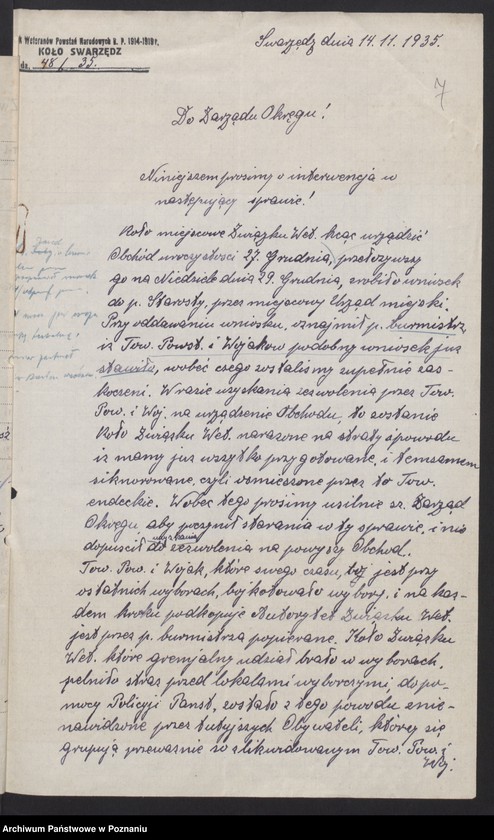 Weteranów Powstań Narodowych R. P. 1914-1919 r.
KOŁO SWARZĘDZ
48/35.
Swarzędz dnia 14.11.1935.
7
Do Zarządu Okręgu!
Niniejszem prosimy o interwencja w
następujący sprawie!
Koło miejscowe Związku Wet. hcąc urządzić
Obchód uroczystości 27. Grudnia, przełożywszy
go na Niedziele dnia 29. Grudnia, zrobiło wniosek
do p. Starosty, przez miejscowy Urząd miejski.
Przy oddawaniu wniosku, uznajmił p. burmistrz,
iż Tow. Powst. i Wojaków podobny wniosek już
stawiło, wobéc czego zostaliśmy zupełnie zas-
koczeni. W razie uzyskania zezwolenia przez Tow.
Pow. i Woj. na urządzenie Obchodu, to zostanie
Koło Związku Wet. narażone na straty spowodu
iż mamy już wszytko przygotowane, i temsamem
, czyli ośmieszone przez to Tow.
endeckie. Wobec tego prosimy usilnie sz. Zarząd
Okręgu aby poczynił starania w ty sprawie, i nie
dopuścił do uzyskania zezwolenia na powyszy Obchod.
Tow. Pow. i Wojak, które swego czasu, toj jest przy
ostatnich wyborach, bojkotowało wybory, i na każ-
dem kroku podkopuje Autorytet Związku Wet.
jest przez p. burmistrza popierane. Koło Związku
Wet. które gremjalny udział brało w wyborach,
pełniło straż przed lokalami wyborczymi, do po-
mocy Policyji Państ, zostało z tego powodu znie-
nawidzone przez tutejszych Obywateli, którzy się
grupują przeważnie w zlikwidowanym Tow. Pow. i
Woj.
Archiwum Państwowe w Poznaniu